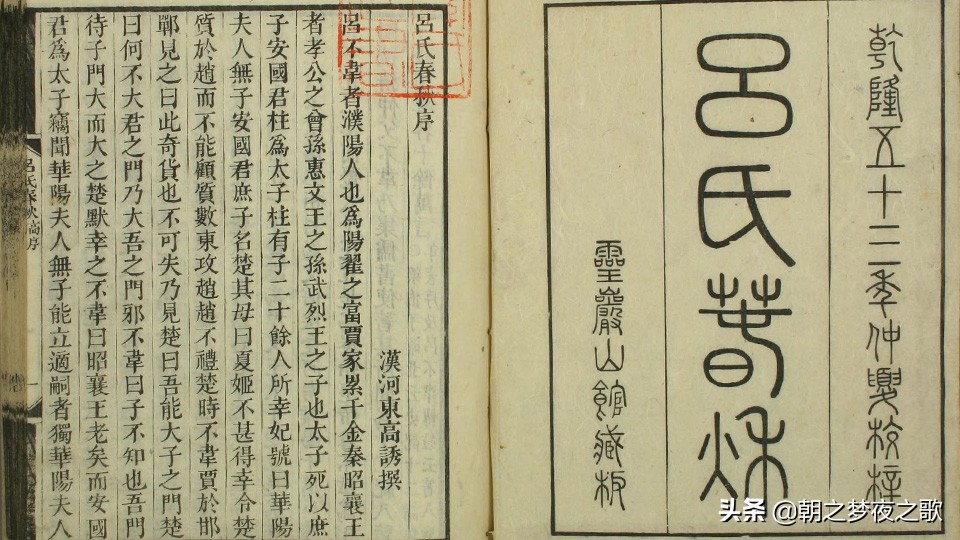 乾隆五十三年仲夏校梓
呂氏春秋
靈巖山館藏板
呂氏春秋序
漢河東高誘撰
呂不韋者濮陽人也爲陽翟之富賈家累千金秦昭襄王
者孝公之曾孫惠文王之孫武烈王之子也太子死以庶
子安國君柱爲太子柱有子二十餘人所幸妃號曰華陽
夫人無子安國君庶子名楚其母曰夏姬不甚得幸令楚
質於趙而不能顧質數東攻趙趙不禮楚時不韋賈於邯
鄲見之曰此奇貨也不可失乃見楚曰吾能大子之門楚
曰何不大君之門乃大吾之門邪不韋曰子不知也吾門
待子門大而大之楚默幸之不韋曰昭襄王老矣而安國
君爲太子竊聞華陽夫人無子能立適嗣者獨華陽夫人
呂氏春秋高序
一
头条 @朝之梦夜之歌